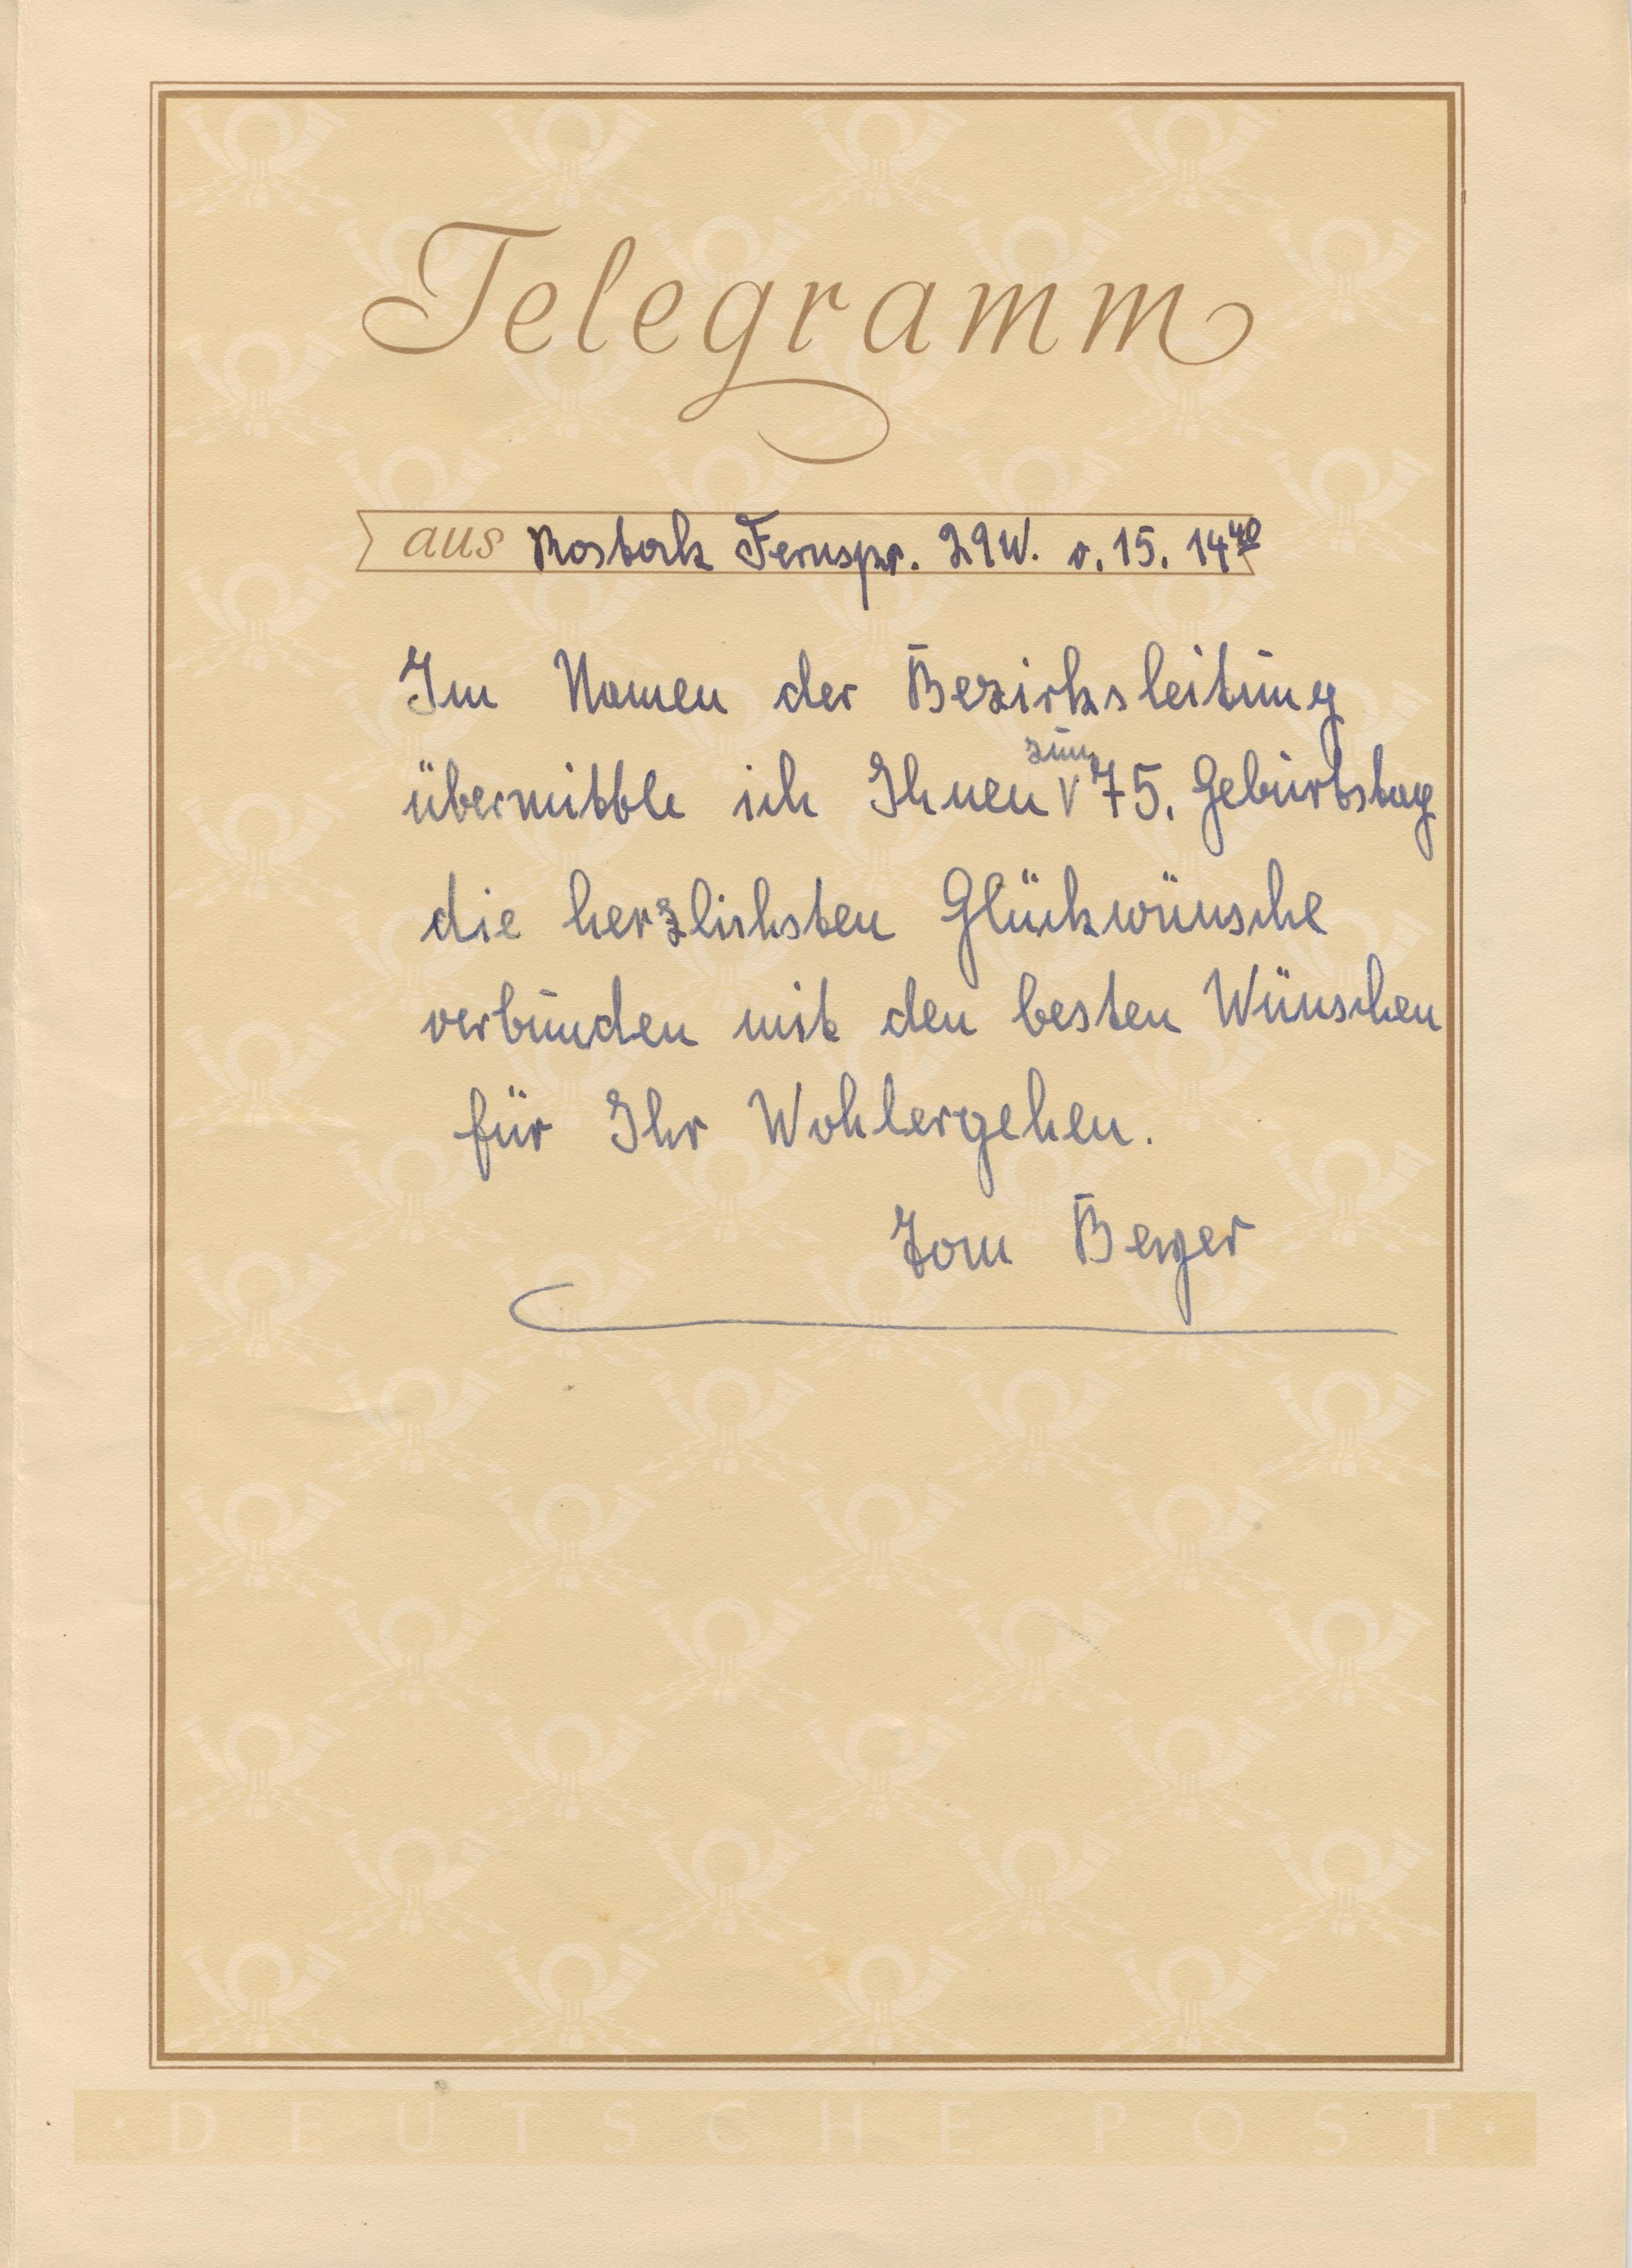 Telegramm
aus Rostock Fernspr. 29W. v. 15. 14⁴⁰
Im Namen der Bezirksleitung
übermittle ich Ihnen zum 75. Geburtstag
die herzlichsten Glückwünsche
verbunden mit den besten Wünschen
für Ihr Wohlergehen.
Tom Beyer
· DEUTSCHE POST ·